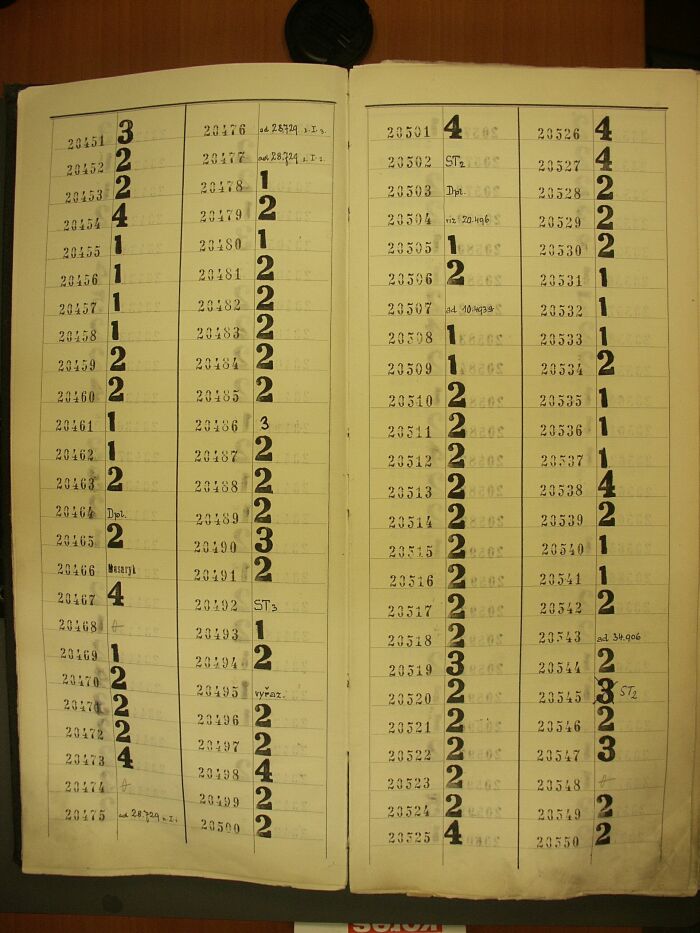 20451 3
20452 2
20453 2
20454 4
20455 1
20456 1
20457 1
20458 1
20459 2
20460 2
20461 1
20462 1
20463 2
20464 Dpl.
20465 2
20466 Masaryk
20467 4
20468
20469 1
20470 2
20471 2
20472 2
20473 4
20474
20475 ad 28.729
20476 ad 28.729
20477 ad 28.729
20478 1
20479 2
20480 1
20481 2
20482 2
20483 2
20484 2
20485 2
20486 3
20487 2
20488 2
20489 2
20490 3
20491 2
20492 ST3
20493 1
20494 2
20495 vyřaz.
20496 2
20497 2
20498 4
20499 2
20500 2
20501 4
20502 ST2
20503 Dpl.
20504 viz 20.496
20505 1
20506 2
20507 ad
20508 1
20509 1
20510 2
20511 2
20512 2
20513 2
20514 2
20515 2
20516 2
20517 2
20518 2
20519 3
20520 2
20521 2
20522 2
20523 2
20524 2
20525 4
20526 4
20527 4
20528 2
20529 2
20530 2
20531 1
20532 1
20533 1
20534 2
20535 1
20536 1
20537 1
20538 4
20539 2
20540 1
20541 1
20542 2
20543 ad 34.906
20544 2
20545 3 ST2
20546 2
20547 3
20548
20549 2
20550 2